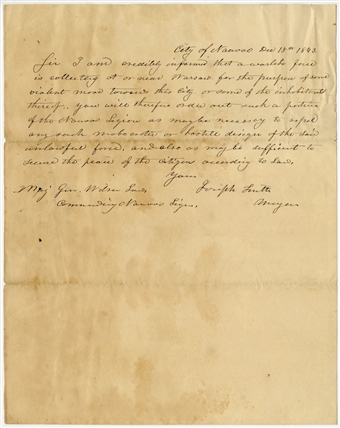 City of Nauvoo Dec 18th 1843
Sir I am credibly informed that a warlike force
is collecting at or near Warsaw for the purpose of some
violent move towards this City or some of the inhabitants
thereof, you will therefore order out such a portion
of the Nauvoo Legion as may be necessary to repel
any such mobocratic or hostile design of the said
unlawful force, and also as may be sufficient to
secure the peace of the citizens according to Law.
Yours
Maj Gen. Wilson Law Joseph Smith
Commanding Nauvoo Legion. Mayor